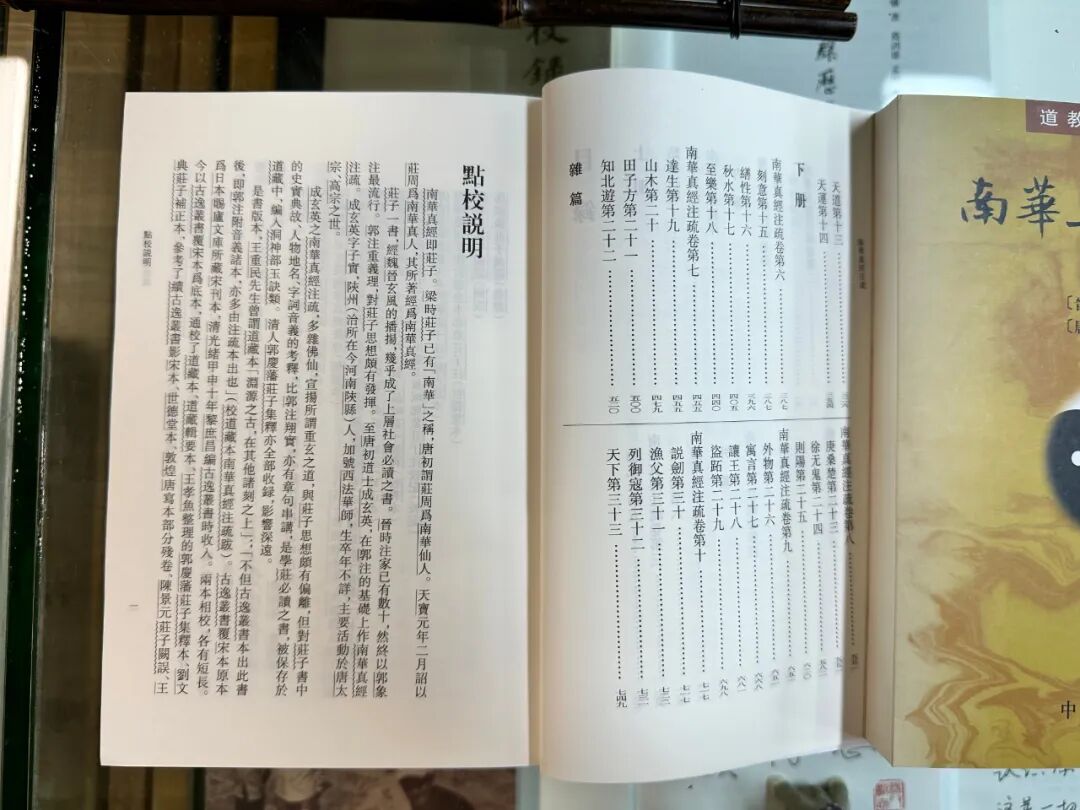 道教
南華
天道第十三
天運第十四
下册
南華真經注疏卷第六……三八七
刻意第十五……三八七
繕性第十六……三九六
秋水第十七……四〇五
至樂第十八……四四〇
南華真經注疏卷第七……四五五
達生第十九……四五五
山木第二十……四七九
田子方第二十一……五〇〇
知北遊第二十二……五二〇
雜篇
南華真經注疏卷第八
庚桑楚第二十三
徐无鬼第二十四
則陽第二十五
南華真經注疏卷第九……六五一
外物第二十六……六五一
寓言第二十七……六六八
讓王第二十八……六八一
盜跖第二十九……六九八
南華真經注疏卷第十……七一七
說劍第三十……七一七
漁父第三十一
列御寇第三十二
天下第三十三……七四九
點校説明
南華真經即莊子。梁時莊子已有「南華」之稱,唐初謂莊周爲南華仙人。天寶元年二月詔以
莊周爲南華真人,其所著經爲南華真經。
莊子一書,經魏晉玄風的播揚,幾乎成了上層社會必讀之書。晉時注家已有數十,然終以郭象
注最流行。郭注重義理,對莊子思想頗有發揮。至唐初道士成玄英,在郭注的基礎上作南華真經
注疏。成玄英字子實,陝州(治所在今河南陝縣)人,加號西法華師,生卒年不詳,主要活動於唐太
宗、高宗之世。
成玄英之南華真經注疏,多雜佛仙,宣揚所謂重玄之道,與莊子思想頗有偏離,但對莊子書中
的史實典故、人物地名、字詞音義的考釋,比郭注翔實,亦有章句串講,是學莊必讀之書,被保存於
道藏中,編入洞神部玉訣類。清人郭慶藩莊子集釋亦全部收録,影響深遠。
是書版本,王重民先生曾謂道藏本「淵源之古,在其他諸刻之上」,「不但古逸叢書本出此書
後,即郭注附音義諸本,亦多由注疏本出也」(校道藏本南華真經注疏跋)。古逸叢書覆宋本原本
爲日本賜廬文庫所藏宋刊本,清光緒甲申十年黎庶昌編古逸叢書時收入。兩本相校,各有短長。
今以古逸叢書覆宋本爲底本,通校了道藏本、道藏輯要本、王孝魚整理的郭慶藩莊子集釋本、劉文
典莊子補正本,參考了續古逸叢書影宋本、世德堂本、敦煌唐寫本部分殘卷、陳景元莊子闕誤、王
點校説明
一